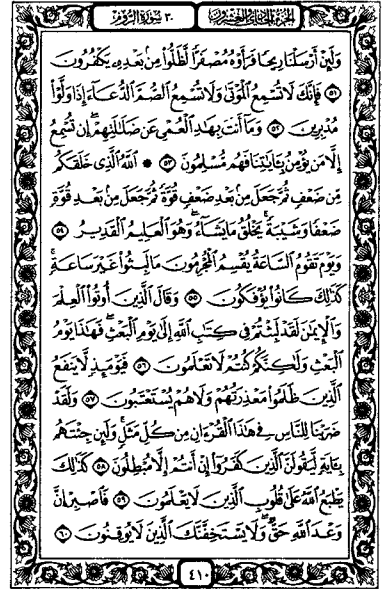 الجزء الحادي والعشرون
٣٠ سورة الروم
وَلَئِنْ أَرْسَلْنَا رِيحًا فَرَأَوْهُ مُصْفَرًّا لَّظَلُّوا۟ مِنۢ بَعْدِهِۦ يَكْفُرُونَ
۝٥١ فَإِنَّكَ لَا تُسْمِعُ ٱلْمَوْتَىٰ وَلَا تُسْمِعُ ٱلصُّمَّ ٱلدُّعَآءَ إِذَا وَلَّوْا۟
مُدْبِرِينَ ۝٥٢ وَمَآ أَنتَ بِهَٰدِ ٱلْعُمْىِ عَن ضَلَٰلَتِهِمْ ۖ إِن تُسْمِعُ
إِلَّا مَن يُؤْمِنُ بِـَٔايَٰتِنَا فَهُم مُّسْلِمُونَ ۝٥٣ ۞ ٱللَّهُ ٱلَّذِى خَلَقَكُم
مِّن ضَعْفٍ ثُمَّ جَعَلَ مِنۢ بَعْدِ ضَعْفٍ قُوَّةً ثُمَّ جَعَلَ مِنۢ بَعْدِ قُوَّةٍ
ضَعْفًا وَشَيْبَةً ۚ يَخْلُقُ مَا يَشَآءُ ۖ وَهُوَ ٱلْعَلِيمُ ٱلْقَدِيرُ ۝٥٤
وَيَوْمَ تَقُومُ ٱلسَّاعَةُ يُقْسِمُ ٱلْمُجْرِمُونَ مَا لَبِثُوا۟ غَيْرَ سَاعَةٍ ۚ
كَذَٰلِكَ كَانُوا۟ يُؤْفَكُونَ ۝٥٥ وَقَالَ ٱلَّذِينَ أُوتُوا۟ ٱلْعِلْمَ
وَٱلْإِيمَٰنَ لَقَدْ لَبِثْتُمْ فِى كِتَٰبِ ٱللَّهِ إِلَىٰ يَوْمِ ٱلْبَعْثِ ۖ فَهَٰذَا يَوْمُ
ٱلْبَعْثِ وَلَٰكِنَّكُمْ كُنتُمْ لَا تَعْلَمُونَ ۝٥٦ فَيَوْمَئِذٍ لَّا يَنفَعُ
ٱلَّذِينَ ظَلَمُوا۟ مَعْذِرَتُهُمْ وَلَا هُمْ يُسْتَعْتَبُونَ ۝٥٧ وَلَقَدْ
ضَرَبْنَا لِلنَّاسِ فِى هَٰذَا ٱلْقُرْءَانِ مِن كُلِّ مَثَلٍ ۚ وَلَئِن جِئْتَهُم
بِـَٔايَةٍ لَّيَقُولَنَّ ٱلَّذِينَ كَفَرُوٓا۟ إِنْ أَنتُمْ إِلَّا مُبْطِلُونَ ۝٥٨ كَذَٰلِكَ
يَطْبَعُ ٱللَّهُ عَلَىٰ قُلُوبِ ٱلَّذِينَ لَا يَعْلَمُونَ ۝٥٩ فَٱصْبِرْ إِنَّ
وَعْدَ ٱللَّهِ حَقٌّ ۖ وَلَا يَسْتَخِفَّنَّكَ ٱلَّذِينَ لَا يُوقِنُونَ ۝٦٠
٤١٠